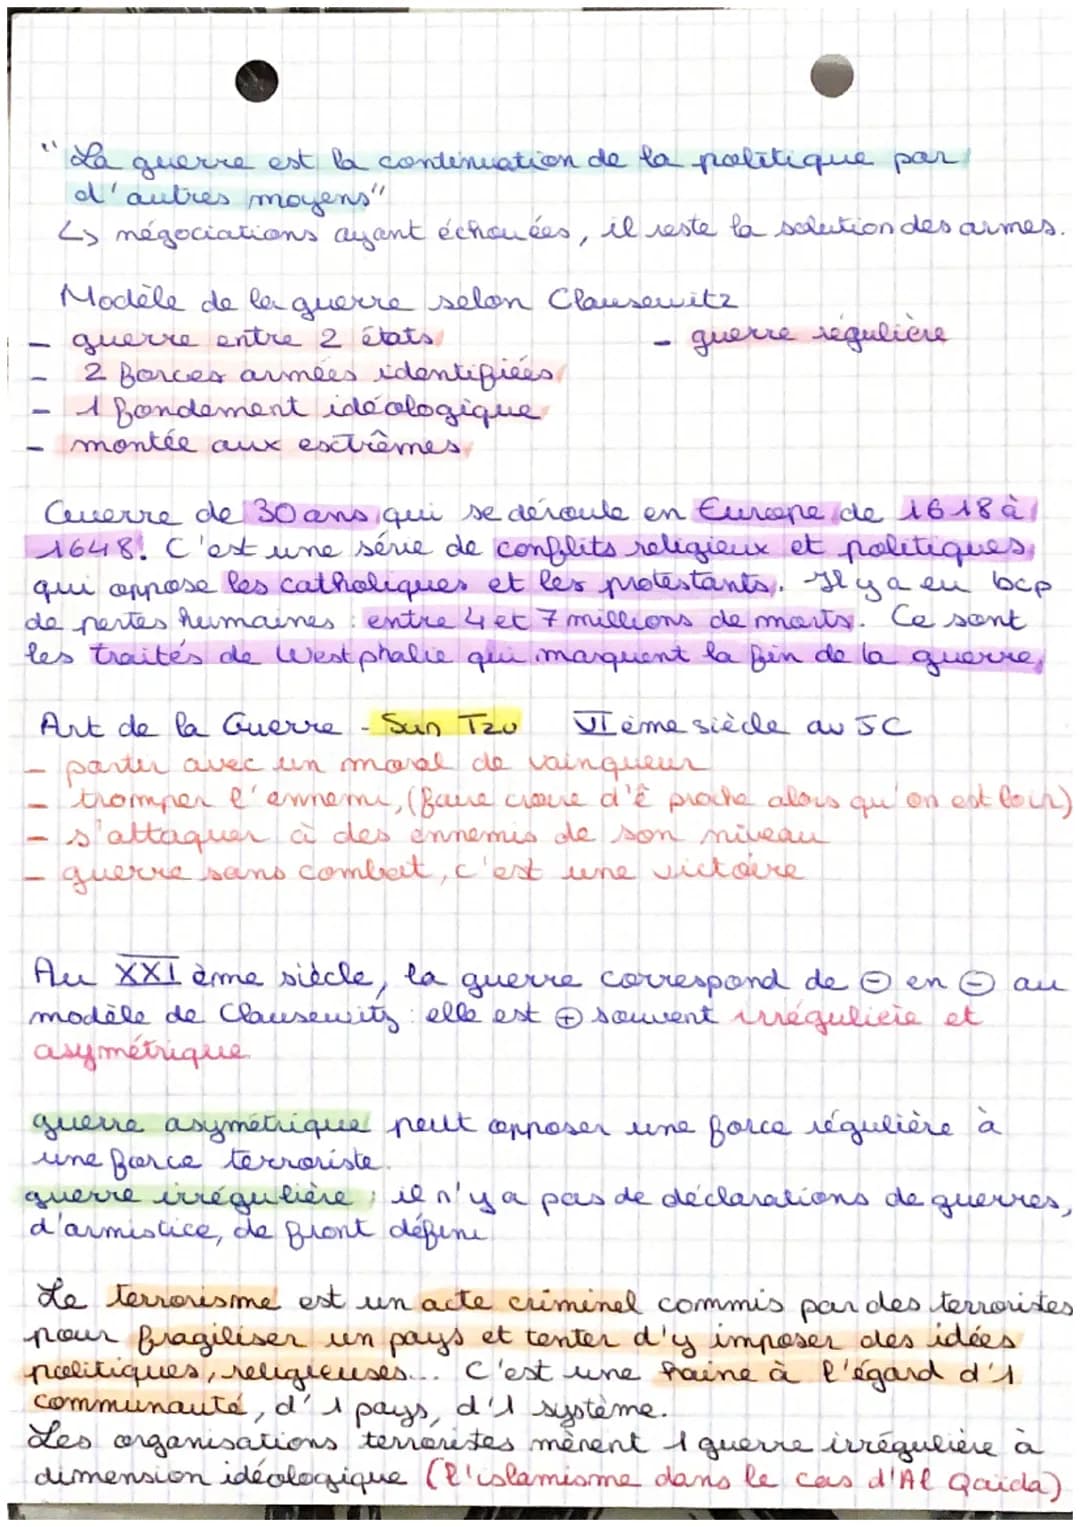 "La guerre est la continuation de la politique par
d'autres moyens"
↳ négociations ayant échouées, il reste la solution des armes.
Modèle de la guerre selon Clausewitz
- guerre entre 2 états - guerre régulière
- 2 forces armées identifiées
- 1 fondement idéologique
- montée aux extrêmes
Guerre de 30 ans qui se déroule en Europe de 1618 à
1648. C'est une série de conflits religieux et politiques
qui oppose les catholiques et les protestants. Il y a eu bcp
de pertes humaines : entre 4 et 7 millions de morts. Ce sont
les traités de Westphalie qui marquent la fin de la guerre,
Art de la Guerre - Sun Tzu VIème siècle av JC
- partir avec un moral de vainqueur
- tromper l'ennemi, (faire croire d'ê proche alors qu'on est loin)
- s'attaquer à des ennemis de son niveau
- guerre sans combat, c'est une victoire
Au XXI ème siècle, la guerre correspond de ⊖ en ⊖ au
modèle de Clausewitz : elle est ⊕ souvent irrégulière et
asymétrique.
guerre asymétrique peut opposer une force régulière à
une force terroriste.
guerre irrégulière ; il n'y a pas de déclarations de guerres,
d'armistice, de front défini
Le terrorisme est un acte criminel commis par des terroristes
pour fragiliser un pays et tenter d'y imposer des idées
politiques, religieuses... C'est une haine à l'égard d'1
communauté, d'1 pays, d'1 système.
Les organisations terroristes mènent 1 guerre irrégulière à
dimension idéologique (l'islamisme dans le cas d'Al Qaïda)